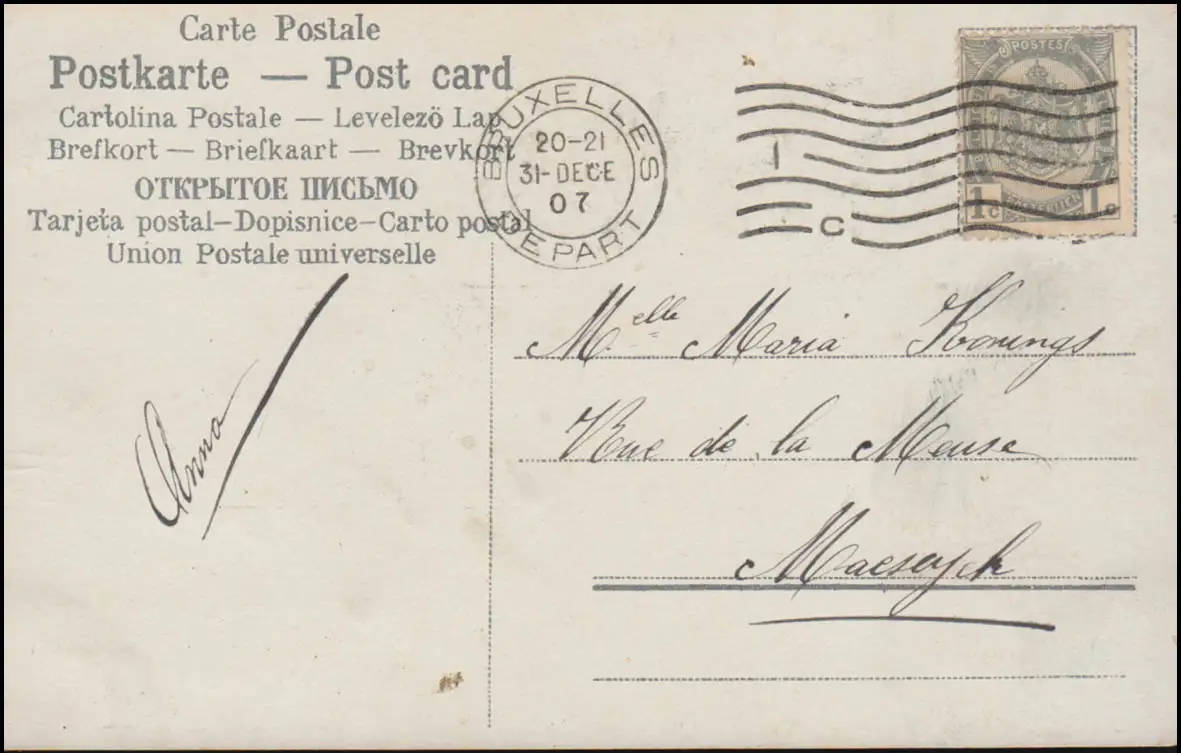 Carte Postale
Postkarte — Post card
Cartolina Postale — Levelező Lap
Brefkort — Briefkaart — Brevkort
ОТКРЫТОЕ ПИСЬМО
Tarjeta postal–Dopisnice–Carto postal
Union Postale universelle
BRUXELLES
20-21
31-DECE
07
DEPART
1
C
POSTES
1c 1c
Melle Maria Konings
Rue de la Meuse
Maeseyck
Anna